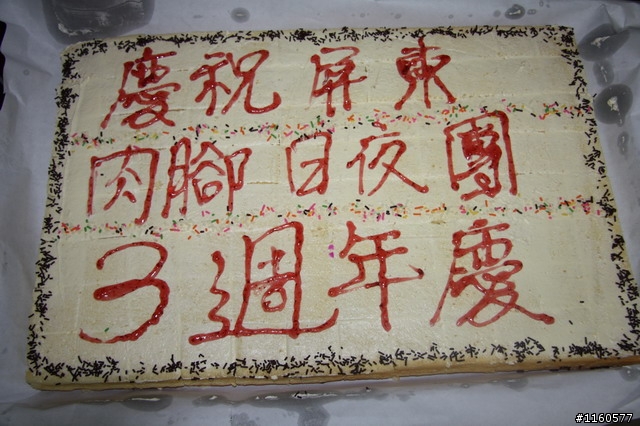 慶祝屏東
肉腳日夜團
3週年慶
#1160577